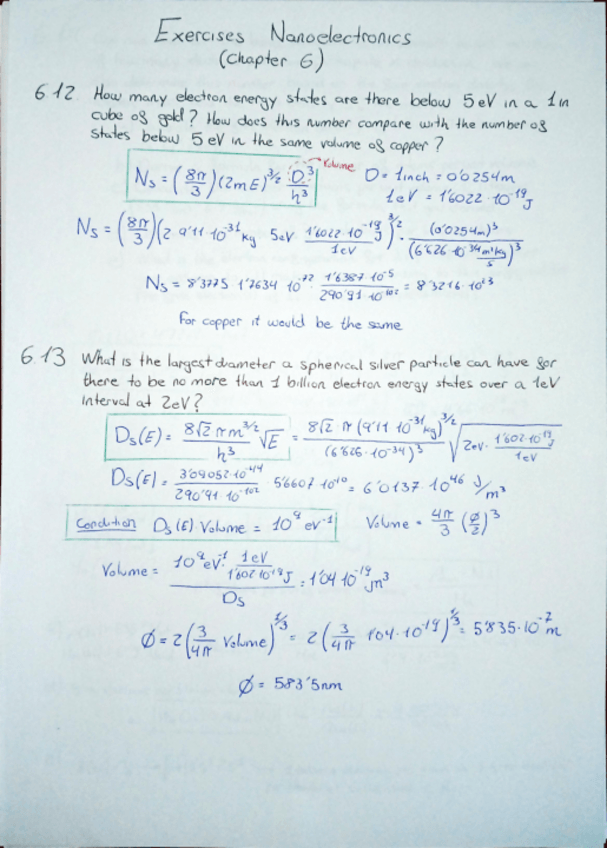 Exercises Nanoelectronics
(Chapter 6)
6.12 How many electron energy states are there below 5 eV in a 1 in
cube of gold? How does this number compare with the number of
states below 5 eV in the same volume of copper?
Ns = (8π/3)(2mE)^3/2 D^3/h^3 Volume D = 1inch = 0'0254m
1eV = 1'6022·10^-19 J
Ns = (8π/3)(2 9'11·10^-31 kg 5eV 1'6022·10^-19 J/1eV)^3/2 · (0'0254m)^3/(6'626·10^-34 m²kg/s)^3
Ns = 8'3775 1'7634 10^-72 · 1'6387·10^-5/290'91·10^-102 = 8'3216·10^23
For copper it would be the same
6.13 What is the largest diameter a spherical silver particle can have for
there to be no more than 1 billion electron energy states over a 1eV
interval at 2eV?
Ds(E) = 8√2 π m^3/2/h^3 √E = 8√2·π (9'11 10^-31 kg)^3/2/(6'626·10^-34)^3 √2eV·1'602·10^-19 J/1eV
Ds(E) = 3'09052·10^-44/290'91·10^-102 · 5'6607·10^-10 = 6'0137·10^46 J/m^3
Condition Ds(E) Volume = 10^9 eV^-1 Volume = 4π/3 (Ø/2)^3
Volume = 10^9 eV^-1 · 1eV/1'602·10^-19 J / Ds = 1'04·10^-19 m^3
Ø = 2(3/4π Volume)^1/3 = 2(3/4π 1'04·10^-19)^1/3 = 5'835·10^-7 m
Ø = 583'5nm